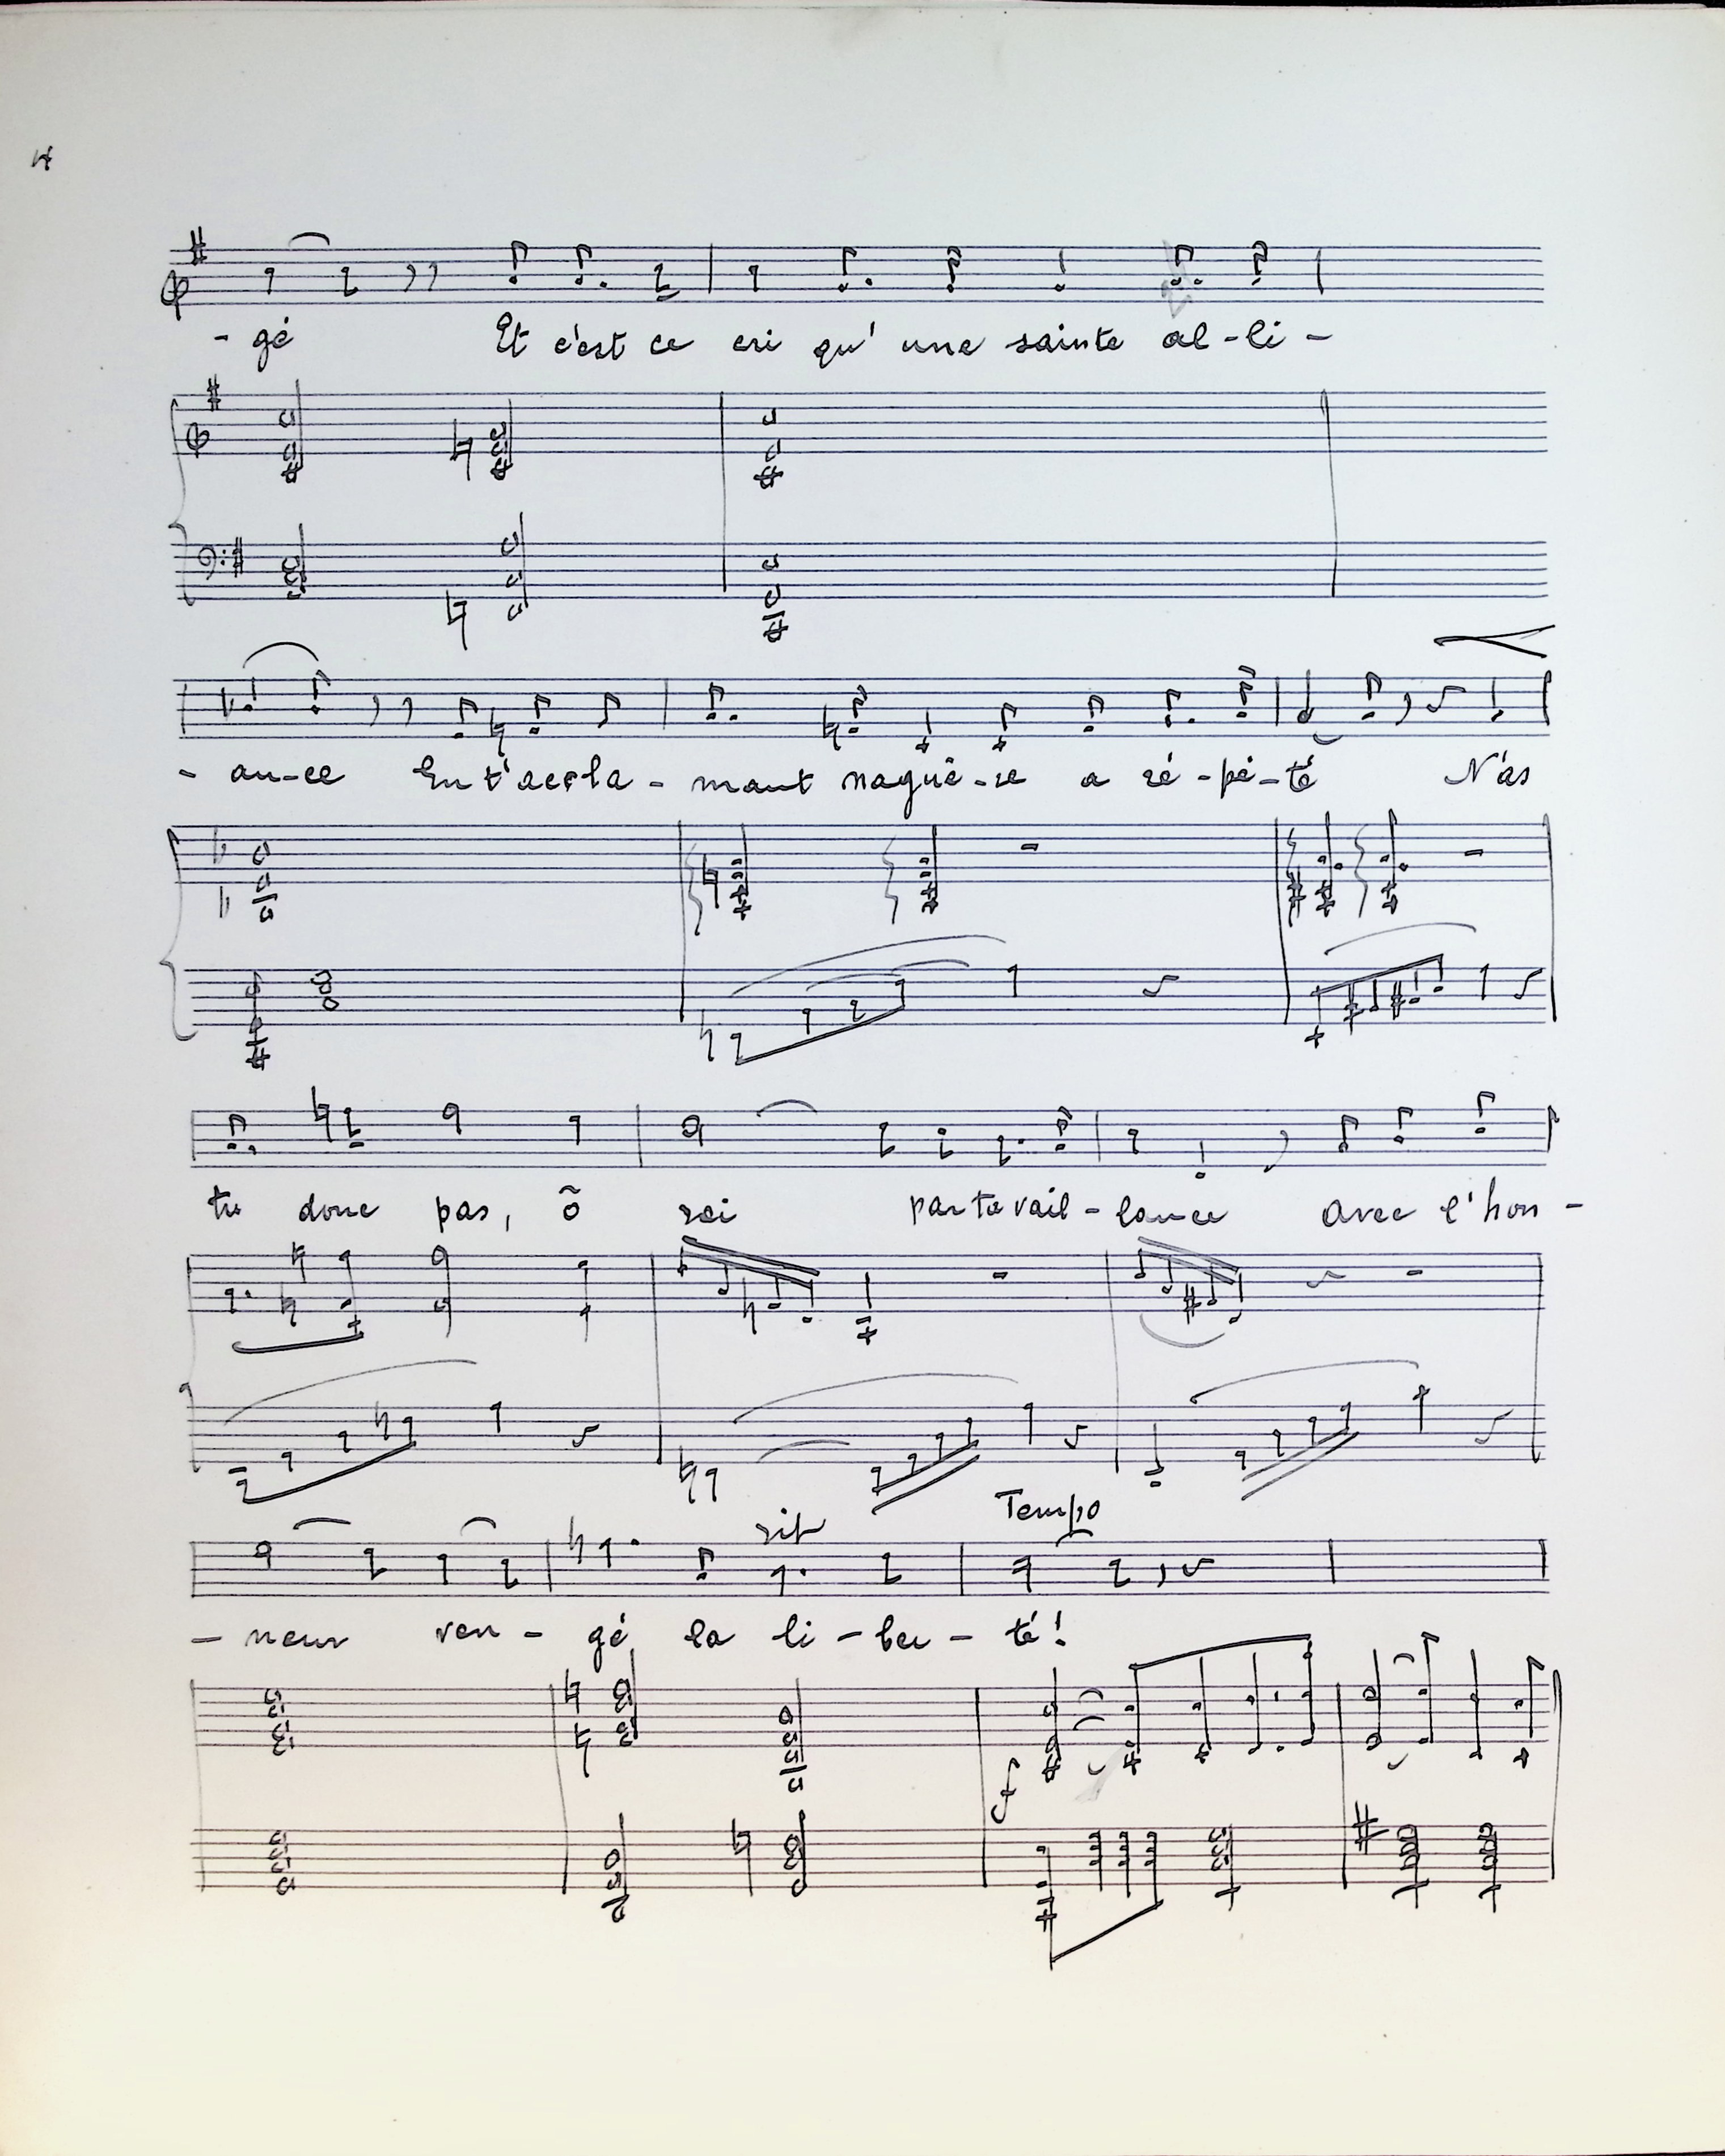 - gé Et c'est ce cri qu' une sainte al - li -
- an - ce En t'accla - mant naguè - re a ré - pé - té N'as
tu donc pas, ô roi par ta vail - lance avec l'hon -
rit Tempo
- neur ven - gé la li - ber - té !
f